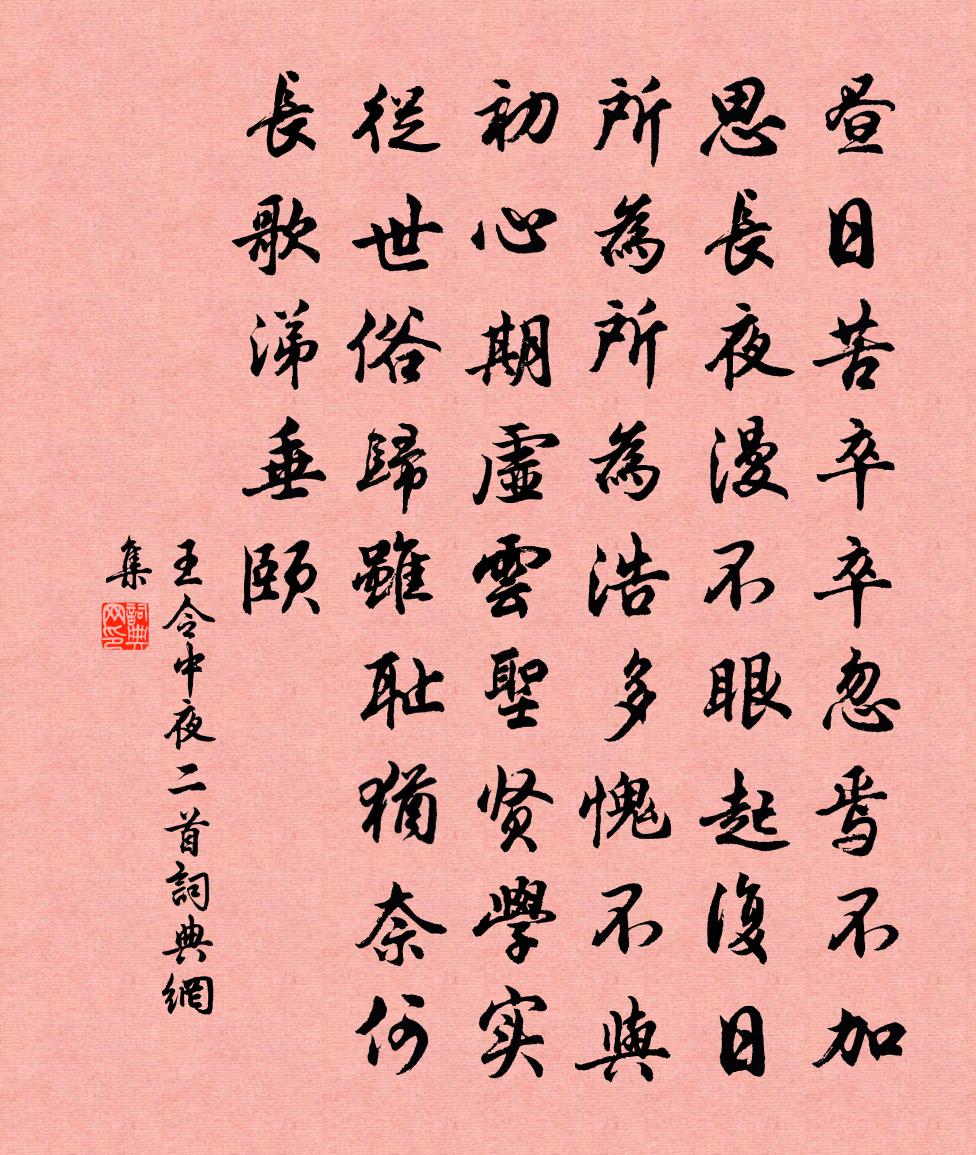 昼日苦卒卒忽焉不加
思長夜漫不眼起復日
所為所為浩多愧不與
初心期虛雲聖贤學实
從世俗歸雖耻猶奈何
長歌涕垂頤
王令中夜二首詞典網
集
詞典网印